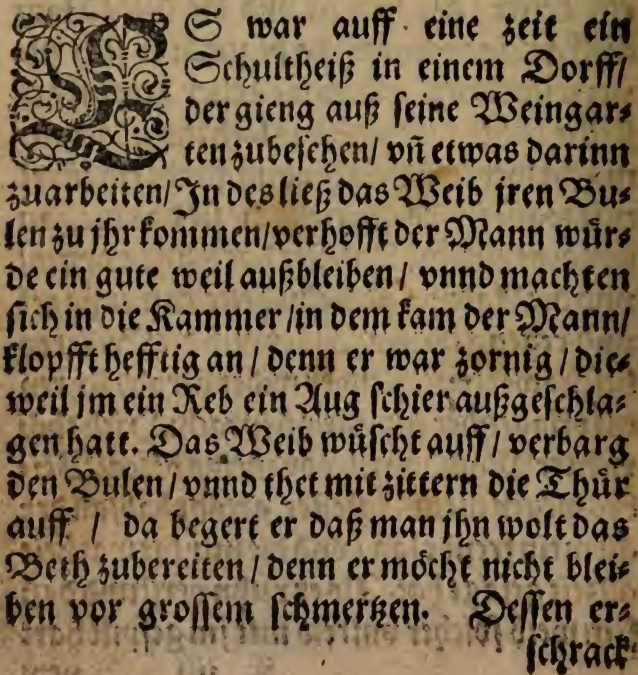 ES war auff eine zeit ein
Schultheiß in einem Dorff/
der gieng auß seine Weingar⸗
ten zubesehen/ vñ etwas darinn
zuarbeiten/ In des ließ das Weib jren Bu⸗
len zu jhr kommen/ verhofft der Mann wür⸗
de ein gute weil außbleiben/ vnnd machten
sich in die Kammer/ in dem kam der Mann/
klopfft hefftig an/ denn er war zornig/ die⸗
weil jm ein Reb ein Aug schier außgeschla⸗
gen hatt. Das Weib wüscht auff/ verbarg
den Bulen/ vnnd thet mit zittern die Thür
auff / da begert er daß man jhn wolt das
Beth zubereiten/ denn er möcht nicht blei⸗
ben vor grossem schmertzen. Dessen er⸗
schrack